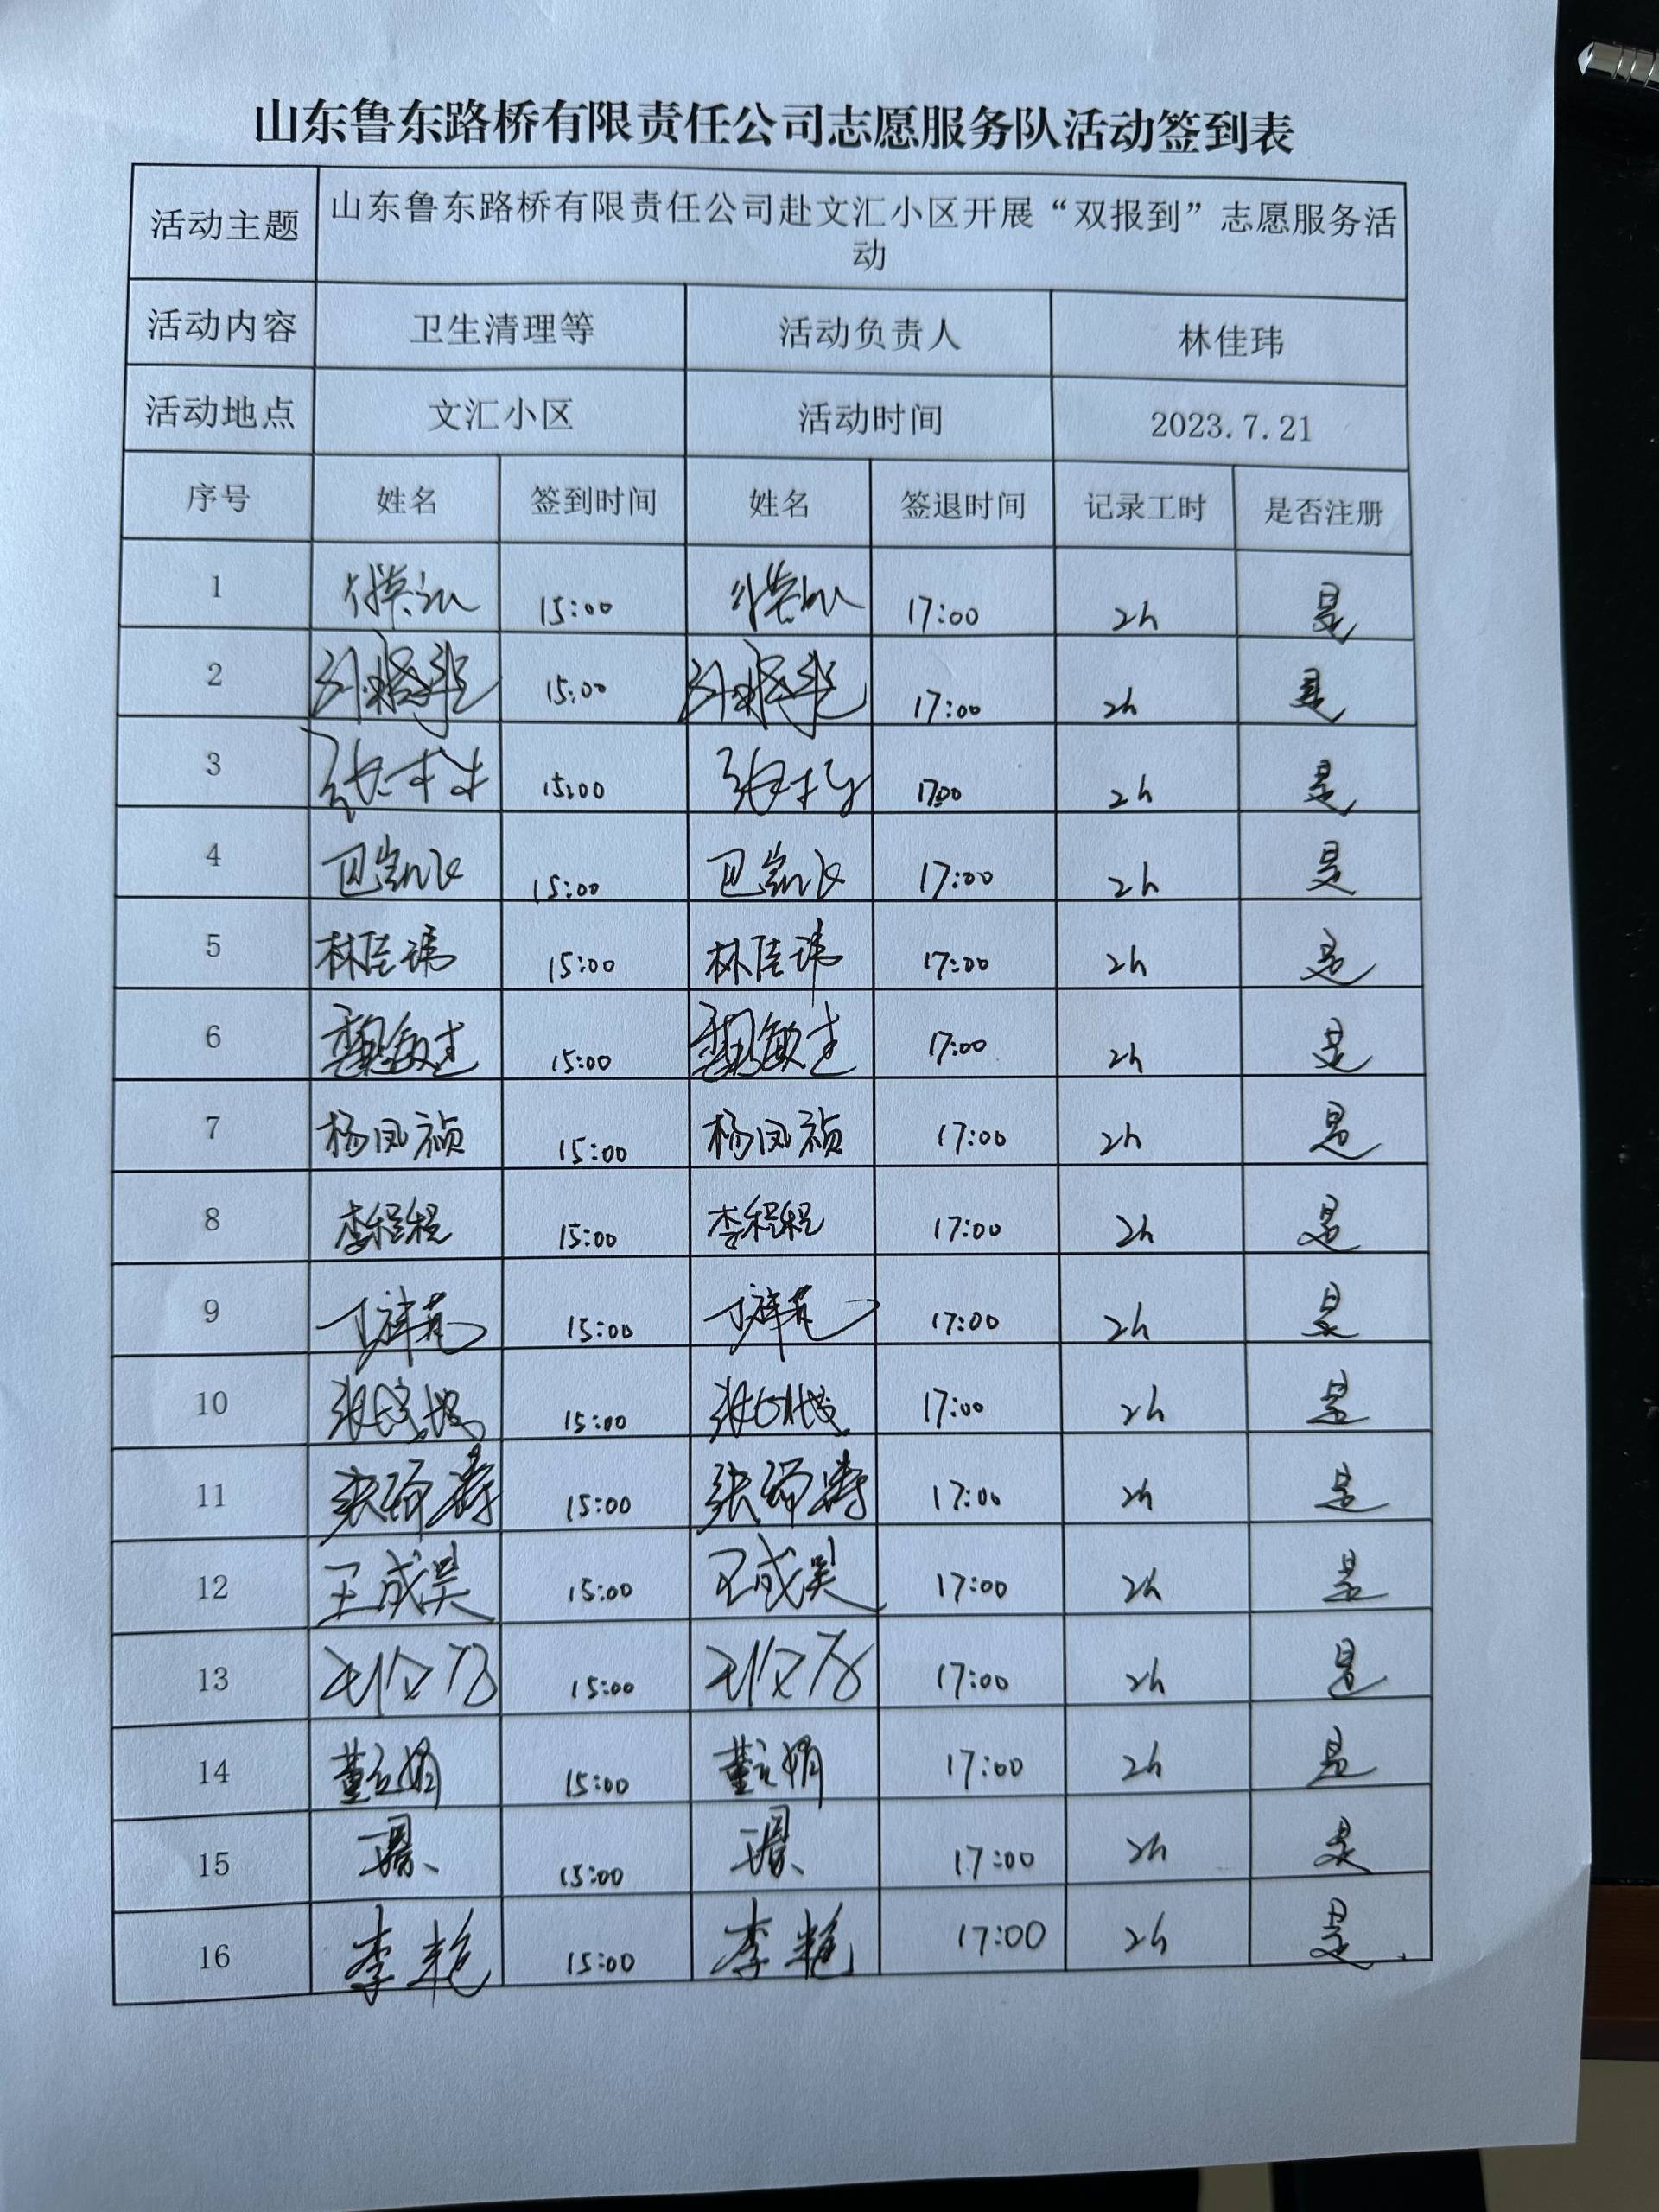 山东鲁东路桥有限责任公司志愿服务队活动签到表
活动主题 山东鲁东路桥有限责任公司赴文汇小区开展“双报到”志愿服务活
动
活动内容 卫生清理等 活动负责人 林佳玮
活动地点 文汇小区 活动时间 2023.7.21
序号 姓名 签到时间 姓名 签退时间 记录工时 是否注册
1 15:00 17:00 2h 是
2 15:00 17:00 2h 是
3 15:00 17:00 2h 是
4 15:00 17:00 2h 是
5 林佳玮 15:00 林佳玮 17:00 2h 是
6 15:00 17:00 2h 是
7 杨凤祯 15:00 杨凤祯 17:00 2h 是
8 李程程 15:00 李程程 17:00 2h 是
9 15:00 17:00 2h 是
10 15:00 17:00 2h 是
11 15:00 17:00 2h 是
12 王成昊 15:00 王成昊 17:00 2h 是
13 15:00 17:00 2h 是
14 15:00 17:00 2h 是
15 15:00 17:00 2h 是
16 李艳 15:00 李艳 17:00 2h 是